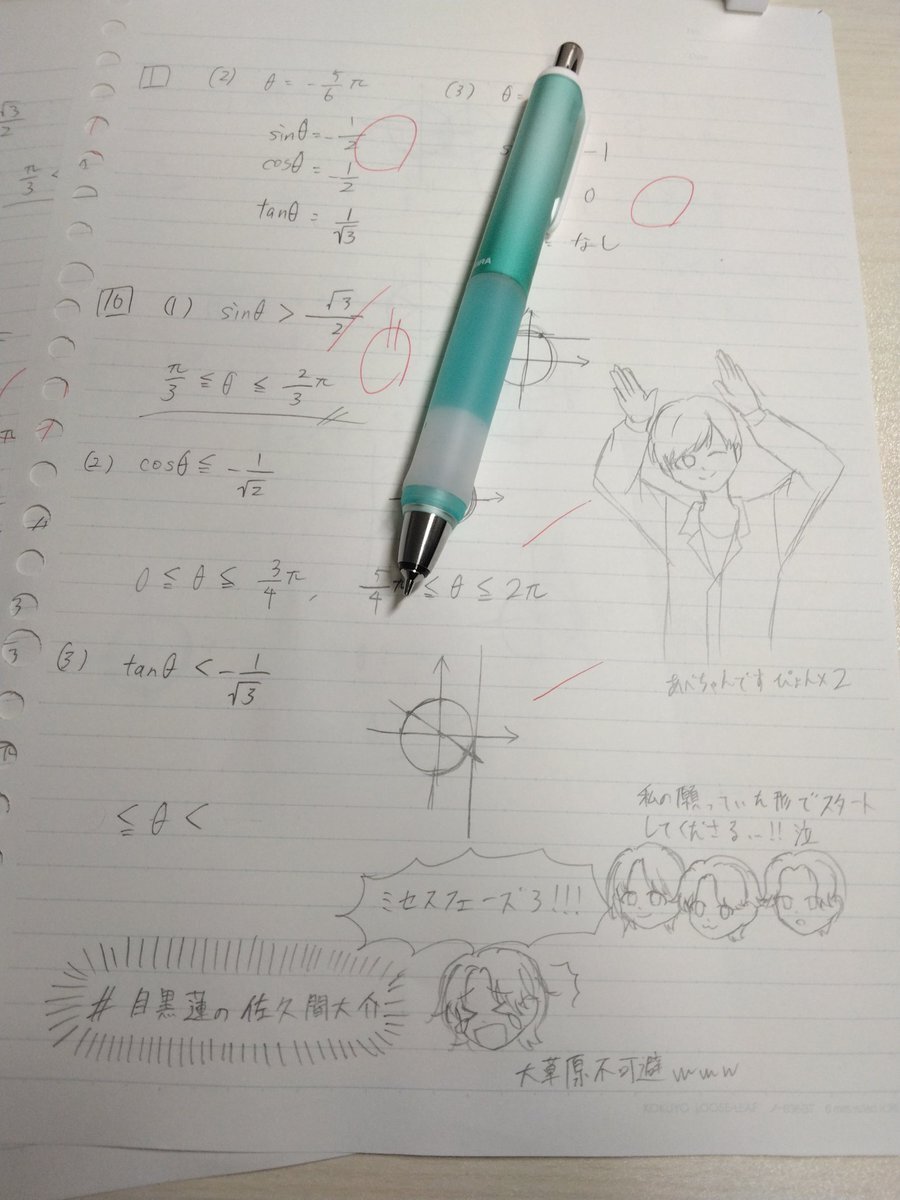 1 (2) θ = -5/6 π (3) θ =
sinθ = -1/2
cosθ = -1/2
tanθ = 1/√3
-1
0
なし
16 (1) sinθ > √3/2
π/3 ≦ θ ≦ 2/3 π
(2) cosθ ≦ -1/√2
0 ≦ θ ≦ 3/4 π, 5/4 π ≦ θ ≦ 2π
(3) tanθ < -1/√3
≦ θ <
あべちゃんですぴょん×2
私の願っていた形でスタート
してくださる…!! 泣
ミセスフェーズ3!!!
#目黒蓮の佐久間大介
大草原不可避www
√3/2
π/3 <
KOKUYO LOOSE-LEAF